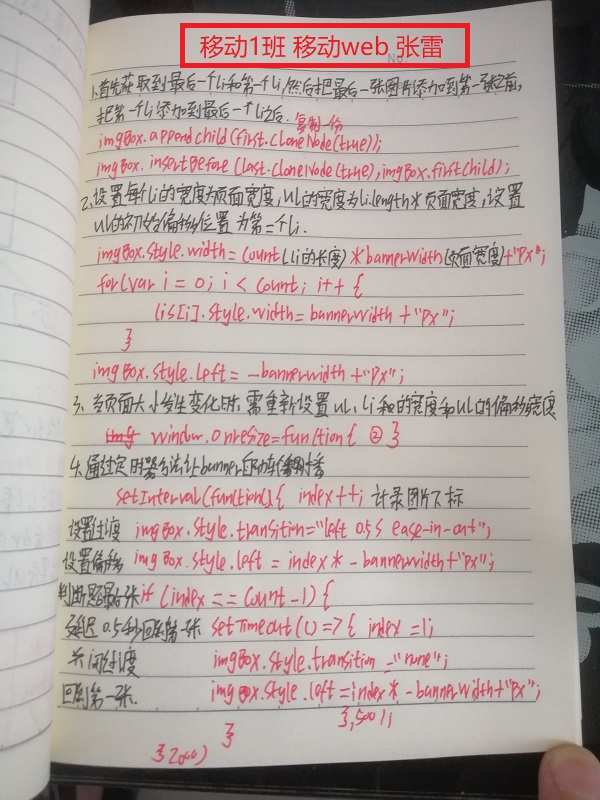 移动1班 移动web 张雷
No.
1.首先获取到最后一个li和第一个li,然后把最后一张图片添加到第一张之前,
把第一个li添加到最后一个li之后. 复制一份
imgBox.appendchild(first.cloneNode(true));
imgBox.insertBefore(last.cloneNode(true),imgBox.firstchild);
2.设置每个li的宽度为页面宽度,ul的宽度为li.length*页面宽度,设置
ul的初始偏移位置为第二个li.
imgBox.style.width=count(li的长度)*bannerWidth(页面宽度)+"Px";
for(var i=0;i<count;i++{
lis[i].style.width=bannerwidth+"Px";
}
imgBox.style.left=-bannerwidth+"Px";
3.当页面大小发生变化时,需重新设置ul、li的宽度和ul的偏移宽度
window.onresize=function{ ② }
4.通过定时器方法让banner自动轮播
setInterval(function(){ index++; 计录图片下标
设置过渡 imgBox.style.transition="left 0.5s ease-in-out";
设置偏移 imgBox.style.left=index*-bannerwidth+"Px";
判断是否最后张 if(index==count-1){
延迟0.5秒回到第一张 setTimeout(()=>{ index=1;
关闭过渡 imgBox.style.transition="none";
回到第一张. imgBox.style.left=index*-bannerWidth+"Px";
},500);
}
}2000)